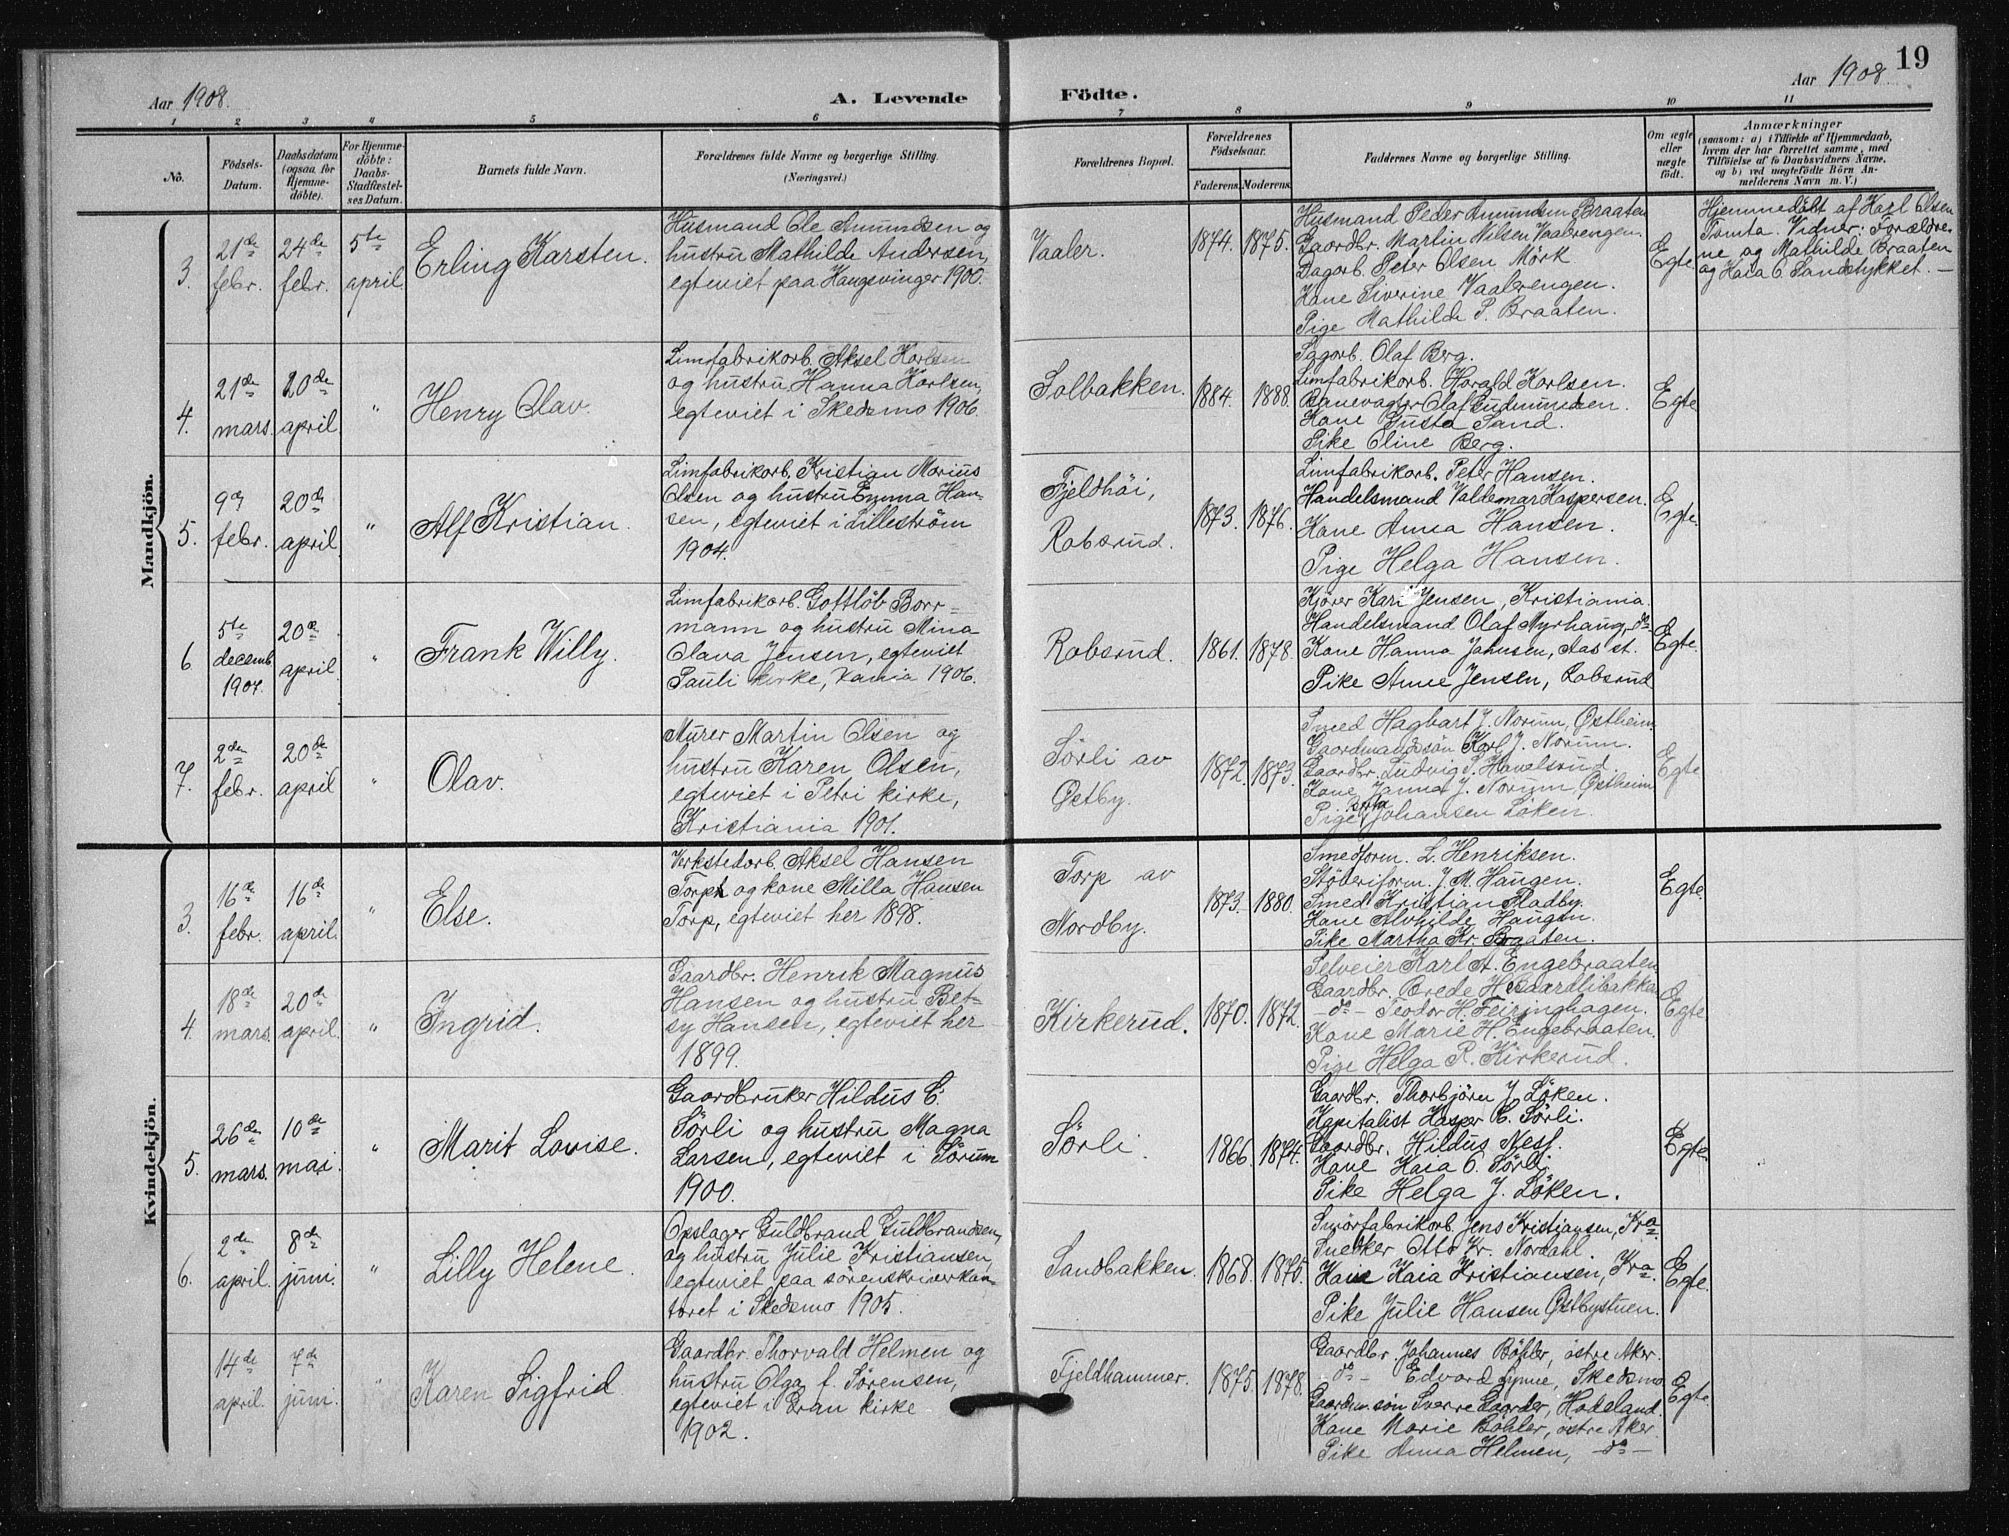 19
Aar 1908.
A. Levende Födte.
Aar 1908.
1 2 3 4 5 6 7 8 9 10 11
No.
Födsels-
Datum.
Daabsdatum
(ogsaa for
Hjemme-
döbte).
For Hjemme-
döbte:
Daabs-
Stadfæstel-
ses Datum.
Barnets fulde Navn.
Forældrenes fulde Navne og borgerlige Stilling.
(Næringsvei.)
Forældrenes Bopæl.
Forældrenes
Födselsaar.
Faderens. Moderens.
Faddernes Navne og borgerlige Stilling.
Om ægte
eller
uægte
födt.
Anmærkninger
(saasom: a) i Tilfælde af Hjemmedaab,
hvem der har forrettet samme, med
Tilföielse af to Daabsvidners Navne,
og b) ved uægtefödte Börn An-
melderens Navn m. V.)
Mandkjön.
3.
21de
febr.
24de
febr.
5te
april
Erling Karsten.
Husmand Ole Amundsen og
hustru Mathilde Andersen,
egteviet paa Kongsvinger 1900.
Vaaler.
1874. 1875.
Husmand Peder Amundsen Braaten
Gaardbr. Martin Nilsen Vaalerengen.
Dagarb. Peter Olsen Mörk
Kone Siverine Vaalerengen.
Pige Mathilde P. Braaten.
Egte
Hjemmedöbt af Karl Olsen
Tomta. Vidner: Forældre-
ne og Mathilde Braaten
og Kaia O Sandstykket. —
4.
21de
mars.
20de
april.
"
Henry Olav.
Limfabrikarb. Aksel Karlsen
og hustru Hanna Karlsen,
egteviet i Skedsmo 1906.
Solbakken.
1884. 1888.
Sagarb. Olaf Berg.
Limfabrikarb. Harald Karlsen.
Banevagter Olaf Gudmundsen.
Kone Gusta Sand.
Pike Oline Berg.
Egte
5.
9de
febr.
20de
april.
"
Alf Kristian.
Limfabrikarb. Kristian Marius
Olsen og hustru Emma Han-
sen, egteviet i Lilleström
1904.
Fjeldhöi,
Robsrud.
1873. 1876.
Limfabrikarb. Peter Hansen.
Handelsmand Valdemar Kaspersen.
Kone Anna Hansen.
Pige Helga Hansen.
Egte.
6
5te
decemb.
1907.
20de
april.
"
Frank Willy.
Limfabrikarb. Gottlöb Borr-
mann og hustru Mina
Olava Jensen, egteviet
Pauli kirke, Kania 1906.
Robsrud.
1861. 1878.
Kjörer Karl Jensen, Kristiania.
Handelsmand Olaf Myrhaug, do
Kone Hanna Jahnsen, Aas st.
Pike Anne Jensen, Robsrud
Egte.
7.
2den
febr.
20de
april
"
Olav.
Murer Martin Olsen og
hustru Karen Olsen,
egteviet i Petri kirke,
Kristiania 1901.
Sørli av
Østby.
1872. 1873.
Smed Hagbart J. Norum, Østheim.
Gaardmandssön Karl J. Norum.
Gaardbr. Ludvig S. Havelsrud.
Kone Janna J. Norum Østheim
Pige Johansen Løken.
Egte
Kvindekjön.
3.
16de
febr.
16de
april.
"
Else.
Verkstedarb. Aksel Hansen
Torp og kone Milla Hansen
Torp, egteviet her 1898.
Torp av
Nordby.
1873. 1880.
Smedform. L. Henriksen.
Stöveriform. J. M. Haugen.
Smed Kristian Fladby.
Kone Alvhilde Haugen.
Pike Martha Kr. Braaten.
Egte.
4.
18de
mars.
20de
april.
"
Ingrid.
Gaardbr. Henrik Magnus
Hansen og hustru Bet-
sy Hansen, egteviet her
1899.
Kirkerud.
1870. 1872.
Selveier Karl A. Engebraaten
Gaardbr. Brede H. Baardlibakken
— do — Teodor H. Feiringhagen.
Kone Marie H. Engebraaten.
Pige Helga R. Kirkerud.
Egte
5.
26de
mars.
10de
mai.
"
Marit Lovise.
Gaardbruker Hildus C.
Sörli og hustru Magna
Larsen, egteviet i Sörum
1900.
Sørli.
1866. 1874.
Gaardbr. Thorbjörn J. Löken.
Kapitalist Kasper C. Sörli.
Gaardbr. Hildus Nest.
Kone Kaia O. Sörli
Pike Helga J. Löken.
Egte.
6.
2de
april.
8de
juni.
"
Lilly Helene.
Opslager Guldbrand Guldbrandsen,
og hustru Julie Kristiansen,
egteviet paa sörenskriverkon-
toret i Skedsmo 1905.
Sandbakken.
1868. 1875.
Smörfabrikarb. Jens Kristiansen, Kra.
Snedker Otto Kr. Nordahl.
Kone Kaia Kristiansen, Kra.
Pike Julie Hansen Østbystuen.
Egte.
14de
april.
7de
juni.
"
Karen Sigfrid.
Gaardbr. Thorvald Helmen og
hustru Olga f. Sörensen,
egteviet i Gran kirke
1902.
Fjeldhammer.
1875. 1878.
Gaardbr. Johannes Böhler, östre Aker.
— do — Edvard Lynne, Skedsmo
Gaardm.sön Sverre Gaarder, Hadeland.
Kone Marie Böhler, östre Aker.
Pike Anna Helmen, — do —
Egte.